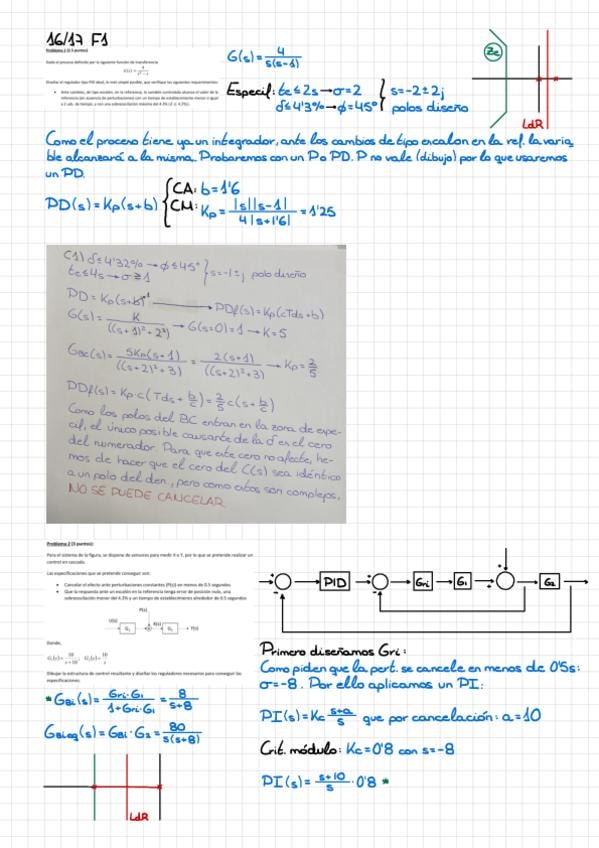 16/17 F1
Problema 1 (3.5 puntos)
Dado el proceso definido por la siguiente función de transferencia
Diseñar el regulador tipo PID ideal, lo más simple posible, que verifique los siguientes requerimientos:
G(s) = 4 / s(s-1)
Especif: te ≤ 2s → σ = 2
δ ≤ 4'3% → φ = 45°
s = -2 ± 2j
polos diseño
Zc
LdR
Como el proceso tiene ya un integrador, ante los cambios de tipo escalon en la ref. la varia
ble alcanzará a la misma. Probaremos con un P o PD. P no vale (dibujo) por lo que usaremos
un PD.
PD(s) = Kp(s+b)
CA: b = 1'6
CM: Kp = |s||s-1| / 4|s+1'6| = 1'25
C1) δ ≤ 4'32% → φ ≤ 45°
te ≤ 4s → σ ≥ 1
s = -1 ± j polo diseño
PD = Kp(s+b) → PDf(s) = Kp(cTds+b)
G(s) = K / ((s+1)²+2²) → G(s=0) = 1 → K = 5
GBC(s) = 5Kp(s+1) / ((s+2)²+3) = 2(s+1) / ((s+2)²+3) → Kp = 2/5
PDf(s) = Kp·c(Tds + b/c) = 2/5 c(s + b/c)
Como los polos del BC entran en la zona de espe-
cif, el único posible causante de la δ es el cero
del numerador. Para que este cero no afecte, he-
mos de hacer que el cero del C(s) sea idéntico
a un polo del den., pero como estos son complejos,
NO SE PUEDE CANCELAR
Problema 2 (3 puntos):
Para el sistema de la figura, se dispone de sensores para medir X e Y, por lo que se pretende realizar un
control en cascada.
Las especificaciones que se pretende conseguir son:
• Cancelar el efecto ante perturbaciones constantes (P(s)) en menos de 0.5 segundos
• Que la respuesta ante un escalón en la referencia tenga error de posición nulo, una
sobreoscilación menor del 4.3% y un tiempo de establecimiento alrededor de 0.5 segundos
P(s)
U(s) G₁ X(s) G₂ Y(s)
Donde,
G₁(s) = 10 / s+10; G₂(s) = 10 / s
Dibujar la estructura de control resultante y diseñar los reguladores necesarios para conseguir las
especificaciones.
+ - PID + - Gri G1 + + G2
Primero diseñamos Gri:
Como piden que la pert. se cancele en menos de 0'5s:
σ = -8. Por ello aplicamos un PI:
PI(s) = Kc s+a / s que por cancelación: a = 10
Crit. módulo: Kc = 0'8 con s = -8
PI(s) = s+10 / s · 0'8 *
* GBi(s) = Gri·G1 / 1+Gri·G1 = 8 / s+8
GBieq(s) = GBi·G2 = 80 / s(s+8)
LdR